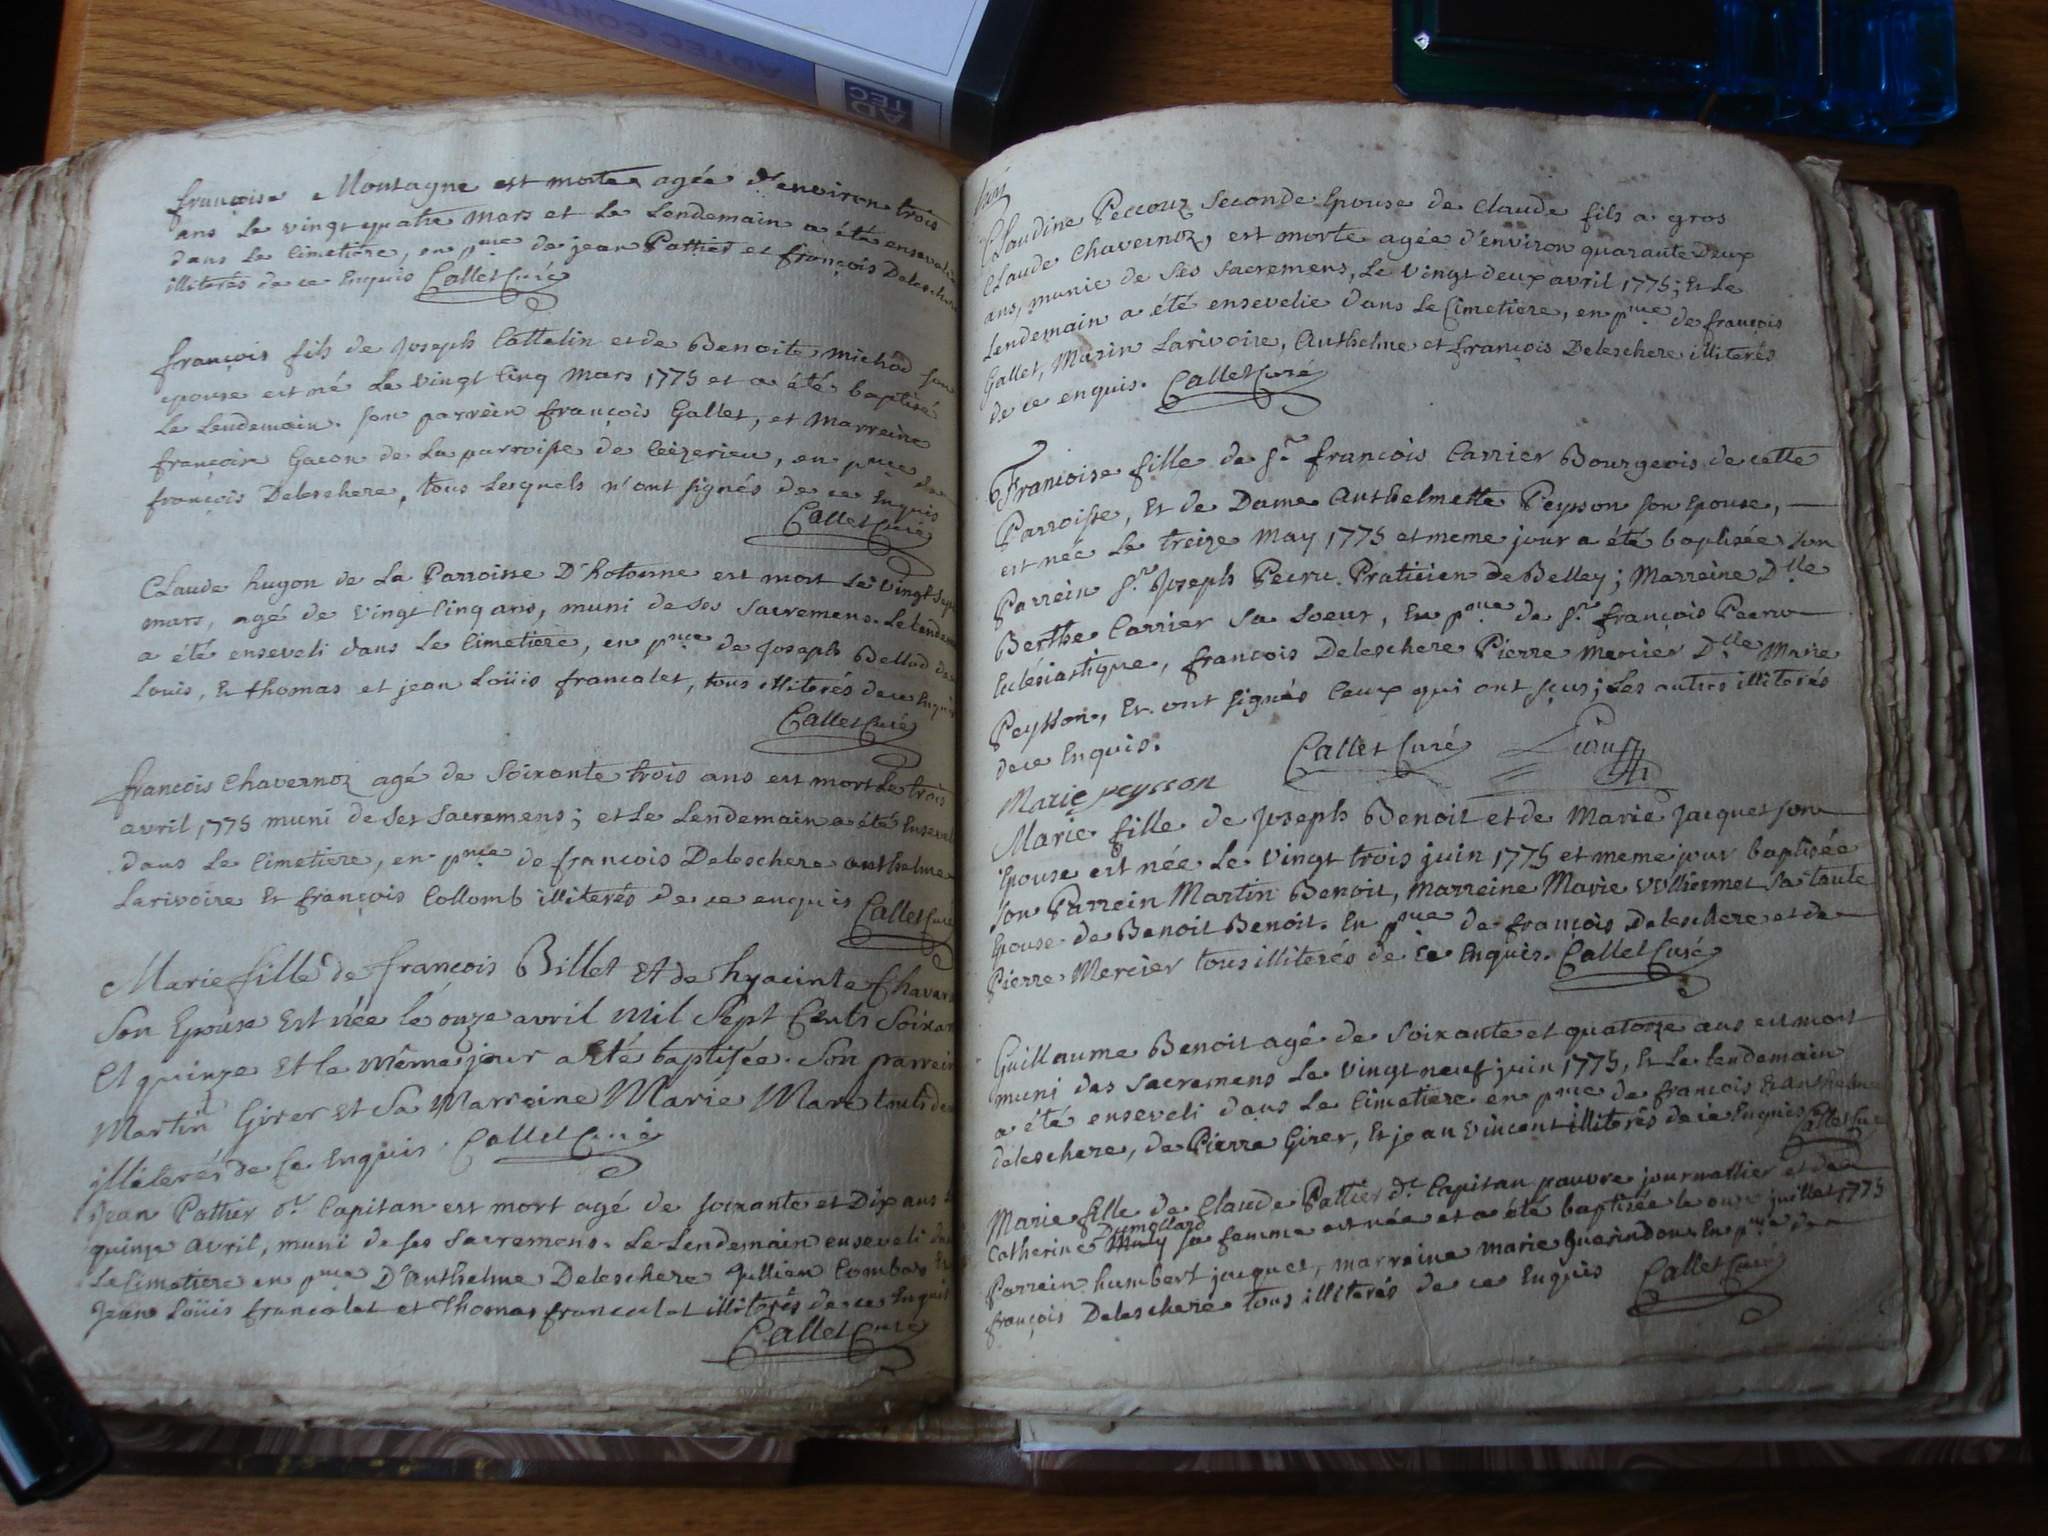 françoise Montagne est morte agée d'environ trois
ans Le vingt quatre mars et Le Lendemain a été ensevelie
dans Le Cimetiere, en p.nce de jean Pattier et françois Deleschere
illiterés de ce Enquis Callet Curé
françois fils de Joseph Cattelin et de Benoite michod son
epouse est né Le vingt Cinq Mars 1775 et a été baptisé
Le Lendemain. son parrein françois Gallet, et Marreine
françoise Gacon de La parroisse de Ceizerieu, en p.nce de
françois Deleschere, tous Lesquels n'ont signés de ce Enquis
Callet Curé
Claude hugon de La Parroisse D'hotonne est mort Le vingt sept
mars, agé de vingt Cinq ans, muni de Ses Sacremens. Le lendemain
a été enseveli dans Le Cimetiere, en p.nce de Joseph Bellod de
Louis, Et thomas et jean Loüis francalet, tous illiterés de ce Enquis
Callet Curé
françois Chavernoz agé de Soixante trois ans est mort Le trois
avril 1775 muni de Ses Sacremens; et Le Lendemain a été Enseveli
dans Le Cimetiere, en p.nce de françois Deleschere anthelme
Larivoire Et françois Collomb illiterés de ce enquis Callet Curé
Marie fille de françois Billet Et de hyacinte Chavar
Son Epouse Est née le onze avril Mil Sept Cents Soixante
Et quinze Et le Même jour a Eté baptisée. Son parrein
Martin Girer Et Sa Marreine Marie Mare touts deux
illiterés de Ce Enquis. Callet Curé
Jean Pattier d.t Capitan est mort agé de soixante et Dix ans le
quinze avril, muni de ses Sacremens. Le Lendemain enseveli dans
Le Cimetiere en p.nce D'Anthelme Deleschere Jullien Combas Et
Jean Loüis francalet et Thomas francalet illiterés de ce Enquis
Callet Curé
Claudine Peccouz Seconde Epouse de Claude fils a gros
Claude Chavernoz, est morte agée d'environ quarante Deux
ans, munie de Ses Sacremens, Le vingt deux avril 1775; Et Le
Lendemain a été ensevelie dans Le Cimetiere, en p.nce de françois
Gallet, Marin Larivoire, Anthelme et françois Deleschere illiterés
de ce enquis. Callet Curé
Francoise fille de S.r françois Carrier Bourgeois de cette
Parroisse, Et de Dame Anthelmette Peysson son Epouse,
est née Le treize May 1775 et meme jour a été baptisée son
Parrein S.r Joseph Pecru Praticien de Belley; Marreine D.lle
Berthe Carrier Sa Soeur, En p.nce de S.r françois Pecru
Eclésiastique, françois Deleschere Pierre Mercier D.lle Marie
Peysson, Et ont signés Ceux qui ont sçus; Les autres illiterés
de ce Enquis.
Callet Curé
Marie peysson
Marie fille de Joseph Benoit et de Marie Jacquet son
Epouse est née Le vingt trois juin 1775 et meme jour baptisée
son Parrein Martin Benoit, Marreine Marie vulliermet Sa tante
Epouse de Benoit Benoit. En p.nce de françois Deleschere et de
Pierre Mercier tous illiterés de ce Enquis. Callet Curé
Guillaume Benoit agé de Soixante et quatorze ans est mort
muni des Sacremens Le vingt neuf juin 1775, Et Le lendemain
a été enseveli dans Le Cimetiere en p.nce de françois Et Anthelme
deleschere, de Pierre Girer, Et jean vincent illiterés de ce Enquis Callet Curé
Marie fille de Claude Pattier d.t Capitan pauvre journallier et de
Catherine Dumollard sa femme est née et a été baptisée le onze juillet 1775
Parrein humbert jacquet, marreine marie Guerindon, En p.nce de
françois Deleschere tous illiterés de ce Enquis Callet Curé
AD
TEC